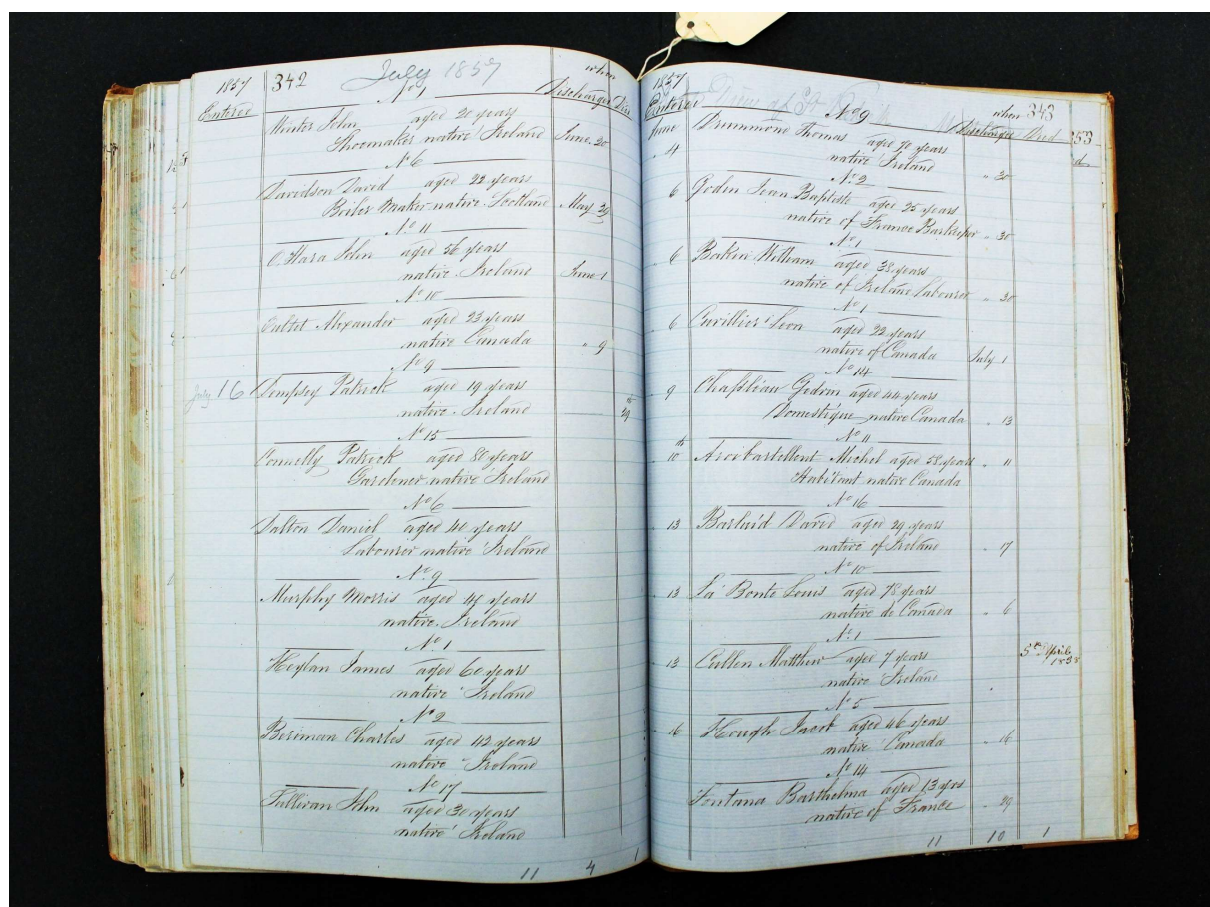 1857 342 July 1857 when
Entered No 1 Discharged Died
Winter John aged 20 years
Shoemaker native Ireland June 20
No 6
Davidson David aged 22 years
Boiler Maker native Scotland May 29
No 11
O'Hara John aged 56 years
native Ireland June 1
No 10
Alexander aged 23 years
native Canada " 9
No 9
July 16 Dempsey Patrick aged 19 years
native Ireland 29th
No 15
Connelly Patrick aged 80 years
Gardener native Ireland
No 6
Dalton Daniel aged 40 years
Labourer native Ireland
No 9
Murphy Morris aged years
native Ireland
No 1
Heylan James aged 60 years
native Ireland
No 2
Beriman Charles aged 42 years
native Ireland
No 17
Sullivan John aged 30 years
native Ireland
11 4 1
1857 when 343
Entered No 9 Discharged Died
June Drummond Thomas aged 70 years
" 4 native Ireland " 30
No 2
6 Godin Jean Baptiste aged 25 years
native of France Barkeeper " 30
No 1
" 6 William aged 38 years
native of Ireland Labourer " 30
No 1
" 6 Cuvillier Leon aged 22 years
native of Canada July 1
No 14
" 9 Gedeon aged 44 years
Domestique native Canada " 13
No 11
" 10th Michel aged 58 years " 11
Habitant native Canada
No 16
" 13 David aged 29 years
native of Ireland " 17
No 10
" 13 La Bonte Louis aged 78 years
native de Canada " 6
No 1
" 13 Cullen Matthew aged 7 years 5th April
native Ireland 1858
No 5
" 16 Hough Jacob aged 46 years
native Canada " 16
No 14
Fontana Barthelma aged 13 yrs
native of France " 29
11 10 1
353